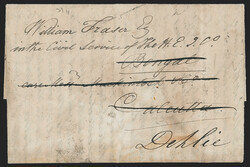 William Fraser Esq
in the Civil Service of the H.E.I.Co
Bengal
care
Calcutta
Dehlie